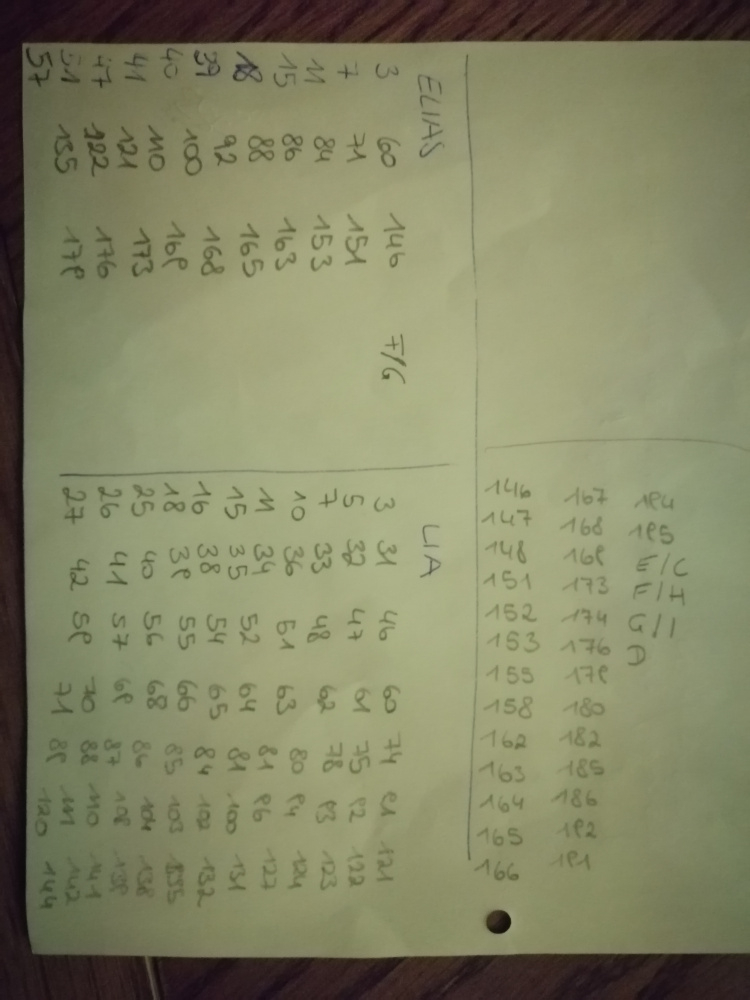 ELIAS
3 60 146 F/G
7 71 151
11 84 153
15 86 163
18 88 165
39 92 168
40 100 169
41 110 173
47 121 176
51 122 179
57 135
LIA
3 31 46 60 74 91 121
5 32 47 61 75 92 122
7 33 48 62 78 93 123
10 36 51 63 80 94 124
11 34 52 64 81 96 127
15 35 54 65 81 100 131
16 38 55 66 84 102 132
18 39 56 68 85 103 135
25 40 57 69 86 104 138
26 41 59 70 87 109 139
27 42 71 88 110 141
89 111 142
120 144
146 167 194
147 168 195
148 169 E/C
151 173 F/I
152 174 G/I
153 176
155 179
158 180
162 182
163 185
164 186
165 192
166 191